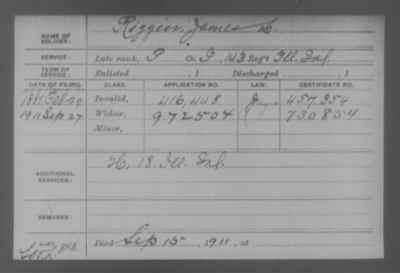 NAME OF SOLDIER: Riggin, James
SERVICE: Late rank, P Co. I, 143 Reg't Ill. Inf.
TERM OF SERVICE: Enlisted , 1 Discharged , 1
DATE OF FILING. CLASS. APPLICATION NO. LAW. CERTIFICATE NO.
1881 Feb 29 Invalid, 416,448 457,354
1911 Sep 27 Widow, 972504 730854
Minor,
ADDITIONAL SERVICES: H, 18. Ill. Inf.
REMARKS:
Died Sep 15, 1911, at